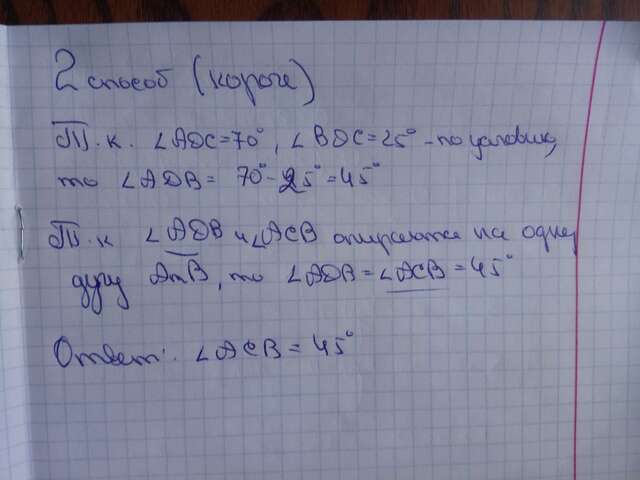 2 способ (короче)
Т.к. ∠ADC=70°, ∠BDC=25° - по условию,
то ∠ADB = 70°-25°=45°
Т.к ∠ADB и ∠ACB опираются на одну
дугу AmB, то ∠ADB=∠ACB=45°
Ответ: ∠ACB=45°